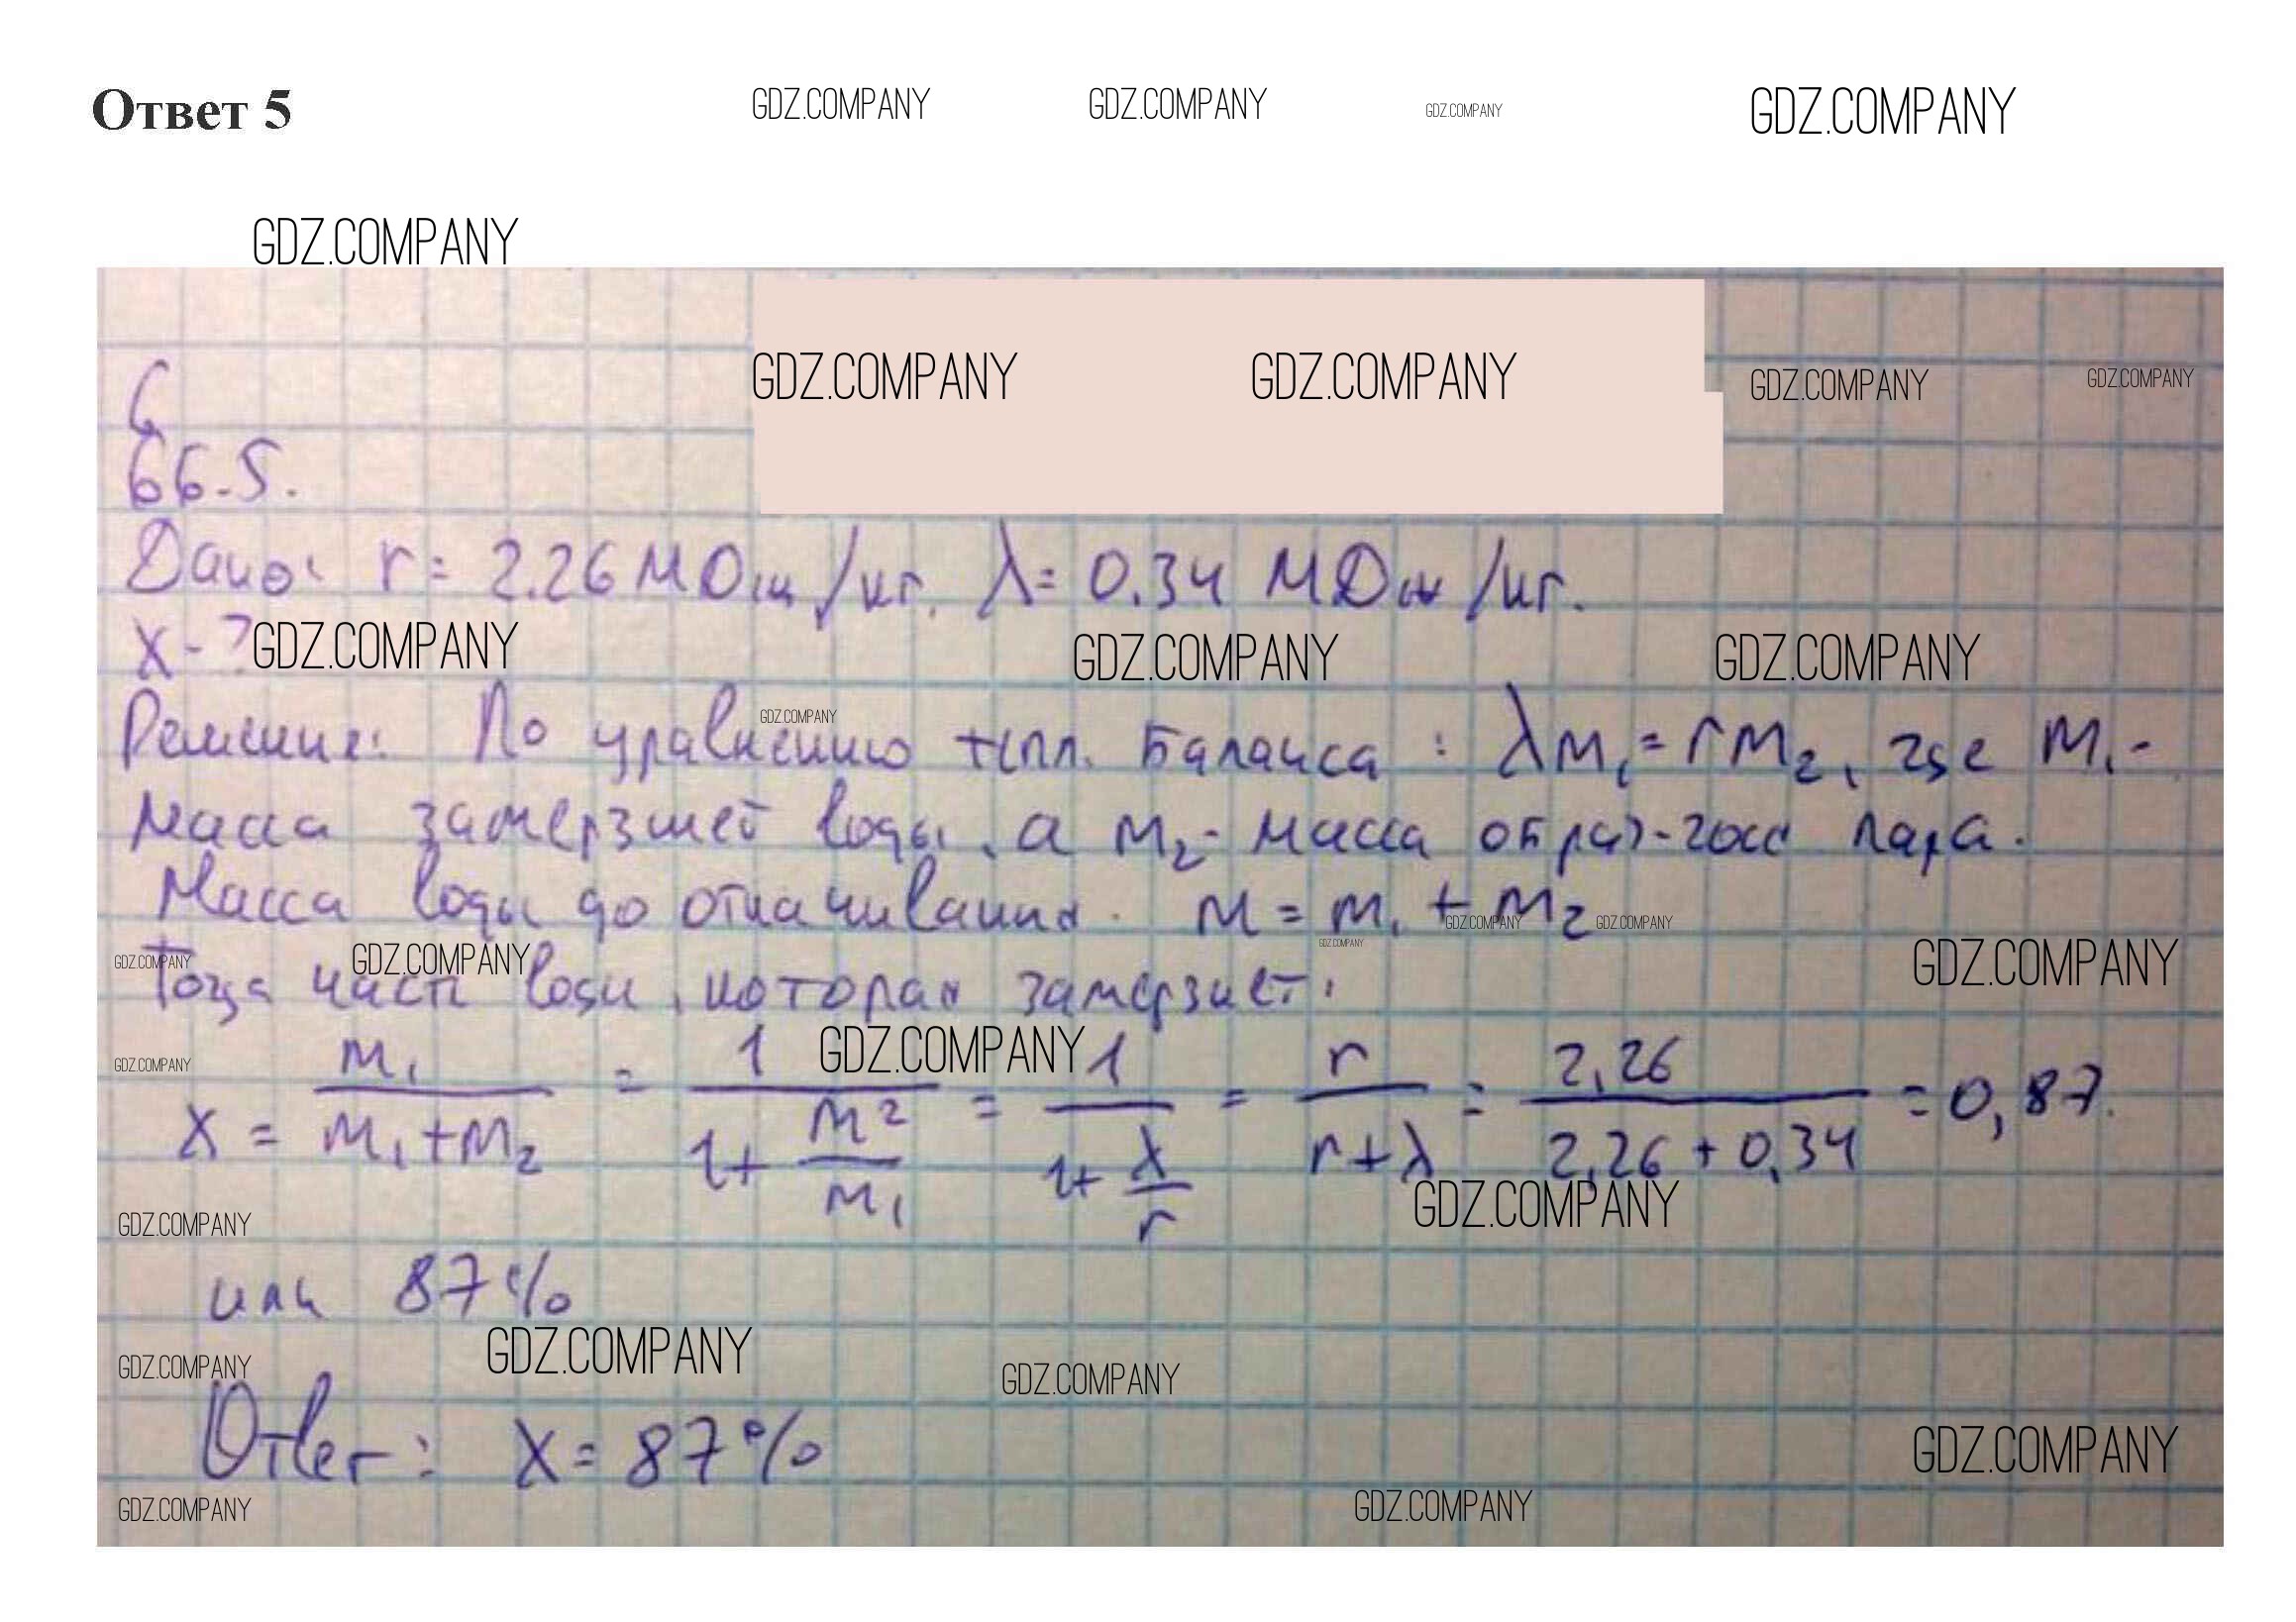 Ответ 5
GDZ.COMPANY GDZ.COMPANY GDZ.COMPANY GDZ.COMPANY
GDZ.COMPANY
GDZ.COMPANY GDZ.COMPANY GDZ.COMPANY GDZ.COMPANY
66.5.
Дано: r = 2.26 МДж/кг. λ = 0.34 МДж/кг.
x - ? GDZ.COMPANY GDZ.COMPANY GDZ.COMPANY
GDZ.COMPANY
Решение: По уравнению тепл. баланса : λm₁ = rm₂, где m₁ -
масса замерзшей воды, а m₂ - масса образ-гося пара.
Масса воды до откачивания. m = m₁ + m₂
GDZ.COMPANY GDZ.COMPANY GDZ.COMPANY
GDZ.COMPANY GDZ.COMPANY GDZ.COMPANY
Тогда часть воды, которая замерзнет:
GDZ.COMPANY GDZ.COMPANY
x = m₁/(m₁+m₂) = 1/(1+m2/m₁) = 1/(1+λ/r) = r/(r+λ) = 2,26/(2,26+0,34) = 0,87.
GDZ.COMPANY GDZ.COMPANY
или 87%
GDZ.COMPANY GDZ.COMPANY GDZ.COMPANY
Ответ: x = 87%
GDZ.COMPANY
GDZ.COMPANY GDZ.COMPANY